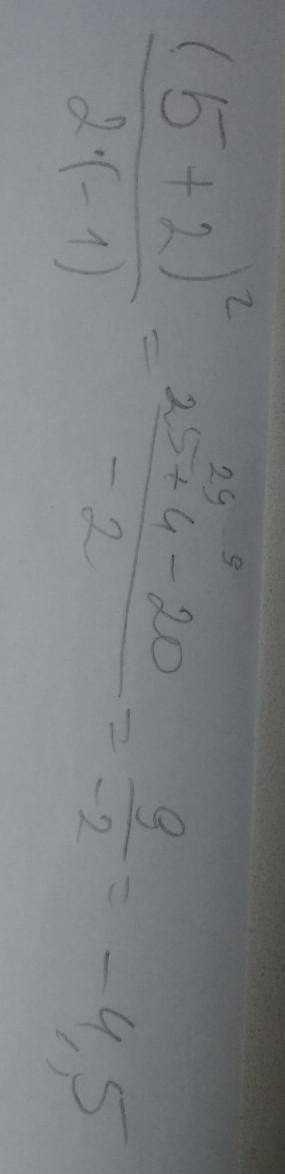 (5+2)² / 2·(-1) = 25+4-20 / -2 = 9 / -2 = -4,5
29 9